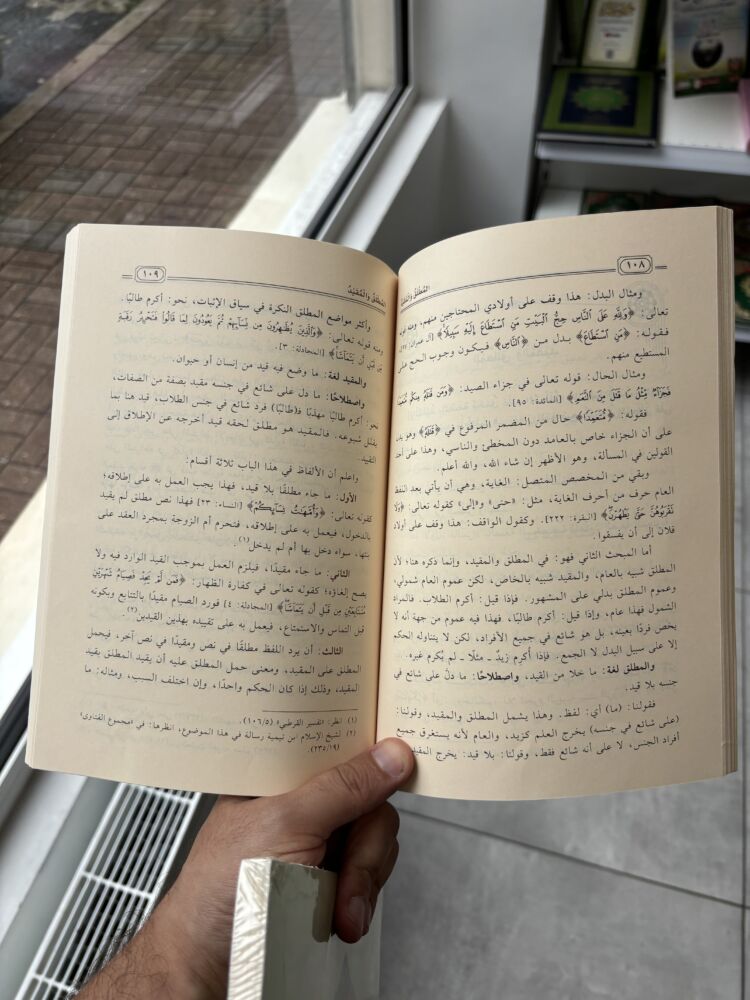 ١٠٨
المطلق والمقيد
ومثال البدل: هذا وقف على أولادي المحتاجين منهم، ومنه قوله
تعالى: ﴿وَلِلَّهِ عَلَى ٱلنَّاسِ حِجُّ ٱلْبَيْتِ مَنِ ٱسْتَطَاعَ إِلَيْهِ سَبِيلًا﴾ [آل عمران: ٩٧]
فقوله: ﴿مَنِ ٱسْتَطَاعَ﴾ بدل من ﴿ٱلنَّاسِ﴾ فيكون وجوب الحج على
المستطيع منهم.
ومثال الحال: قوله تعالى في جزاء الصيد: ﴿وَمَن قَتَلَهُۥ مِنكُم مُّتَعَمِّدًا
فَجَزَآءٌ مِّثْلُ مَا قَتَلَ مِنَ ٱلنَّعَمِ﴾ [المائدة: ٩٥].
فقوله: ﴿مُّتَعَمِّدًا﴾ حال من المضمر المرفوع في ﴿قَتَلَهُۥ﴾ وهو يدل
على أن الجزاء خاص بالعامد دون المخطئ والناسي، وهذا على أحد
القولين في المسألة، وهو الأظهر إن شاء الله، والله أعلم.
وبقي من المخصص المتصل: الغاية، وهي أن يأتي بعد اللفظ
العام حرف من أحرف الغاية، مثل: «حتى» و«إلى» كقوله تعالى: ﴿وَلَا
تَقْرَبُوهُنَّ حَتَّىٰ يَطْهُرْنَ﴾ [البقرة: ٢٢٢]. وكقول الواقف: هذا وقف على أولاد
فلان إلى أن يفسقوا.
أما المبحث الثاني فهو: في المطلق والمقيد، وإنما ذكره هنا؛ لأن
المطلق شبيه بالعام، والمقيد شبيه بالخاص، لكن عموم العام شمولي،
وعموم المطلق بدلي على المشهور. فإذا قيل: أكرم الطلاب. فالمراد
الشمول فهذا عام، وإذا قيل: أكرم طالبًا، فهذا فيه عموم من جهة أنه لا
يخص فردًا بعينه، بل هو شائع في جميع الأفراد، لكن لا يتناوله الحكم
إلا على سبيل البدل لا الجمع. فإذا أُكرم زيدٌ ـ مثلًا ـ لم يُكرم غيره.
والمطلق لغة: ما خلا من القيد، واصطلاحًا: ما دلّ على شائع في
جنسه بلا قيد.
فقولنا: (ما) أي: لفظ. وهذا يشمل المطلق والمقيد، وقولنا:
(على شائع في جنسه) يخرج العلم كزيد، والعام لأنه يستغرق جميع
أفراد الجنس، لا على أنه شائع فقط، وقولنا: بلا قيد: يخرج المقيد.
١٠٩
المُطلَقُ وَالْمُقيَّدُ
وأكثر مواضع المطلق النكرة في سياق الإثبات، نحو: أكرم طالبًا.
ومنه قوله تعالى: ﴿وَٱلَّذِينَ يُظَٰهِرُونَ مِن نِّسَآئِهِمْ ثُمَّ يَعُودُونَ لِمَا قَالُوا۟ فَتَحْرِيرُ رَقَبَةٍ
مِّن قَبْلِ أَن يَتَمَآسَّا﴾ [المجادلة: ٣].
والمقيد لغة: ما وضع فيه قيد من إنسان أو حيوان.
واصطلاحًا: ما دل على شائع في جنسه مقيد بصفة من الصفات،
نحو: أكرم طالبًا مهذبًا فـ(طالبًا) فرد شائع في جنس الطلاب، قيد هنا بما
يقلل شيوعه. فالمقيد هو مطلق لحقه قيد أخرجه عن الإطلاق إلى
التقييد.
واعلم أن الألفاظ في هذا الباب ثلاثة أقسام:
الأول: ما جاء مطلقًا بلا قيد، فهذا يجب العمل به على إطلاقه؛
كقوله تعالى: ﴿وَأُمَّهَٰتُ نِسَآئِكُمْ﴾ [النساء: ٢٣] فهذا نص مطلق لم يقيد
بالدخول، فيعمل به على إطلاقه، فتحرم أم الزوجة بمجرد العقد على
بنتها، سواء دخل بها أم لم يدخل(١).
الثاني: ما جاء مقيدًا، فيلزم العمل بموجب القيد الوارد فيه ولا
يصح إلغاؤه؛ كقوله تعالى في كفارة الظهار: ﴿فَمَن لَّمْ يَجِدْ فَصِيَامُ شَهْرَيْنِ
مُتَتَابِعَيْنِ مِن قَبْلِ أَن يَتَمَآسَّا﴾ [المجادلة: ٤] فورد الصيام مقيدًا بالتتابع وبكونه
قبل التماس والاستمتاع، فيعمل به على تقييده بهذين القيدين(٢).
الثالث: أن يرد اللفظ مطلقًا في نص ومقيدًا في نص آخر، فيحمل
المطلق على المقيد. ومعنى حمل المطلق عليه أن يقيد المطلق بقيد
المقيد، وذلك إذا كان الحكم واحدًا، وإن اختلف السبب، ومثاله: ما
(١) انظر: «تفسير القرطبي» (١٠٦/٥).
(٢) لشيخ الإسلام ابن تيمية رسالة في هذا الموضوع، انظرها: في «مجموع الفتاوى»
(٢٣٥/١٩).